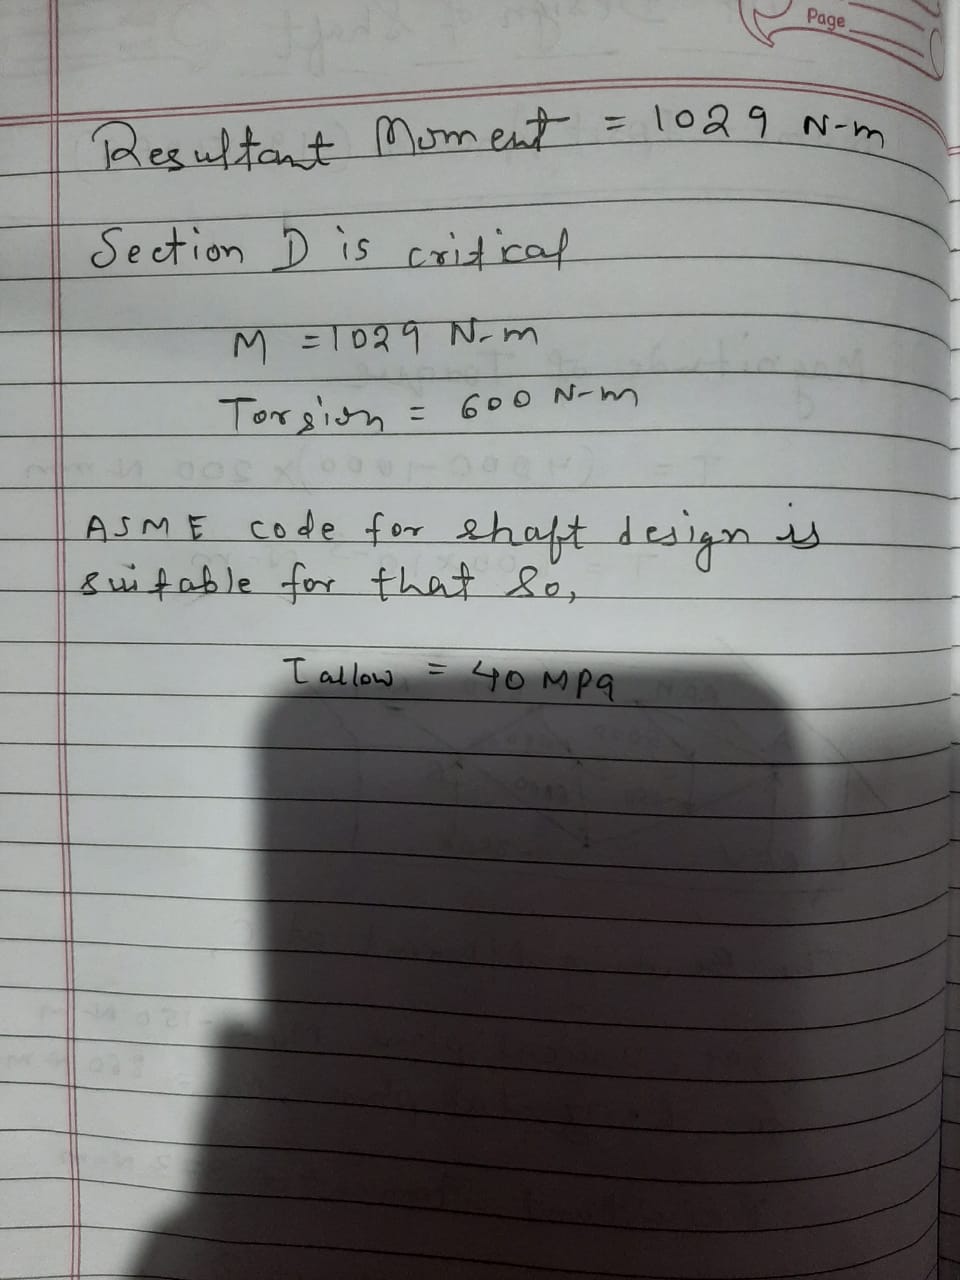 Page
Resultant Moment = 1029 N-m
Section D is critical
M = 1029 N-m
Torsion = 600 N-m
ASME code for shaft design is
suitable for that So,
τ allow = 40 MPa